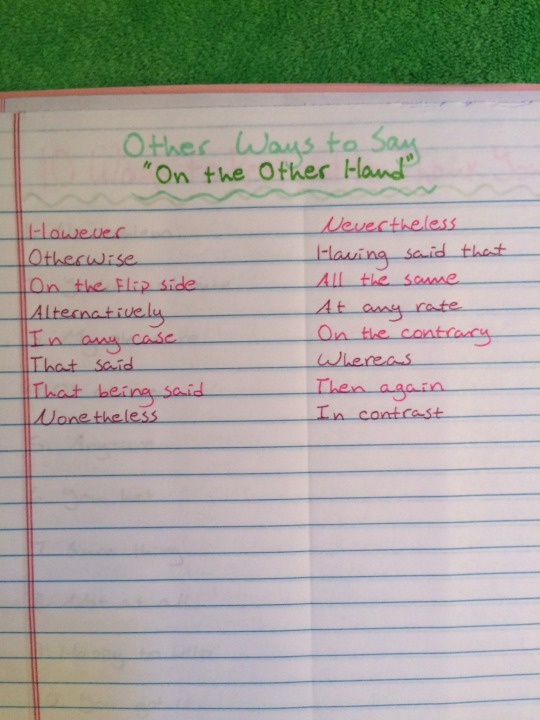 Other Ways to Say
"On the Other Hand"
However
Otherwise
On the Flip side
Alternatively
In any case
That said
That being said
Nonetheless
Nevertheless
Having said that
All the same
At any rate
On the contrary
Whereas
Then again
In contrast